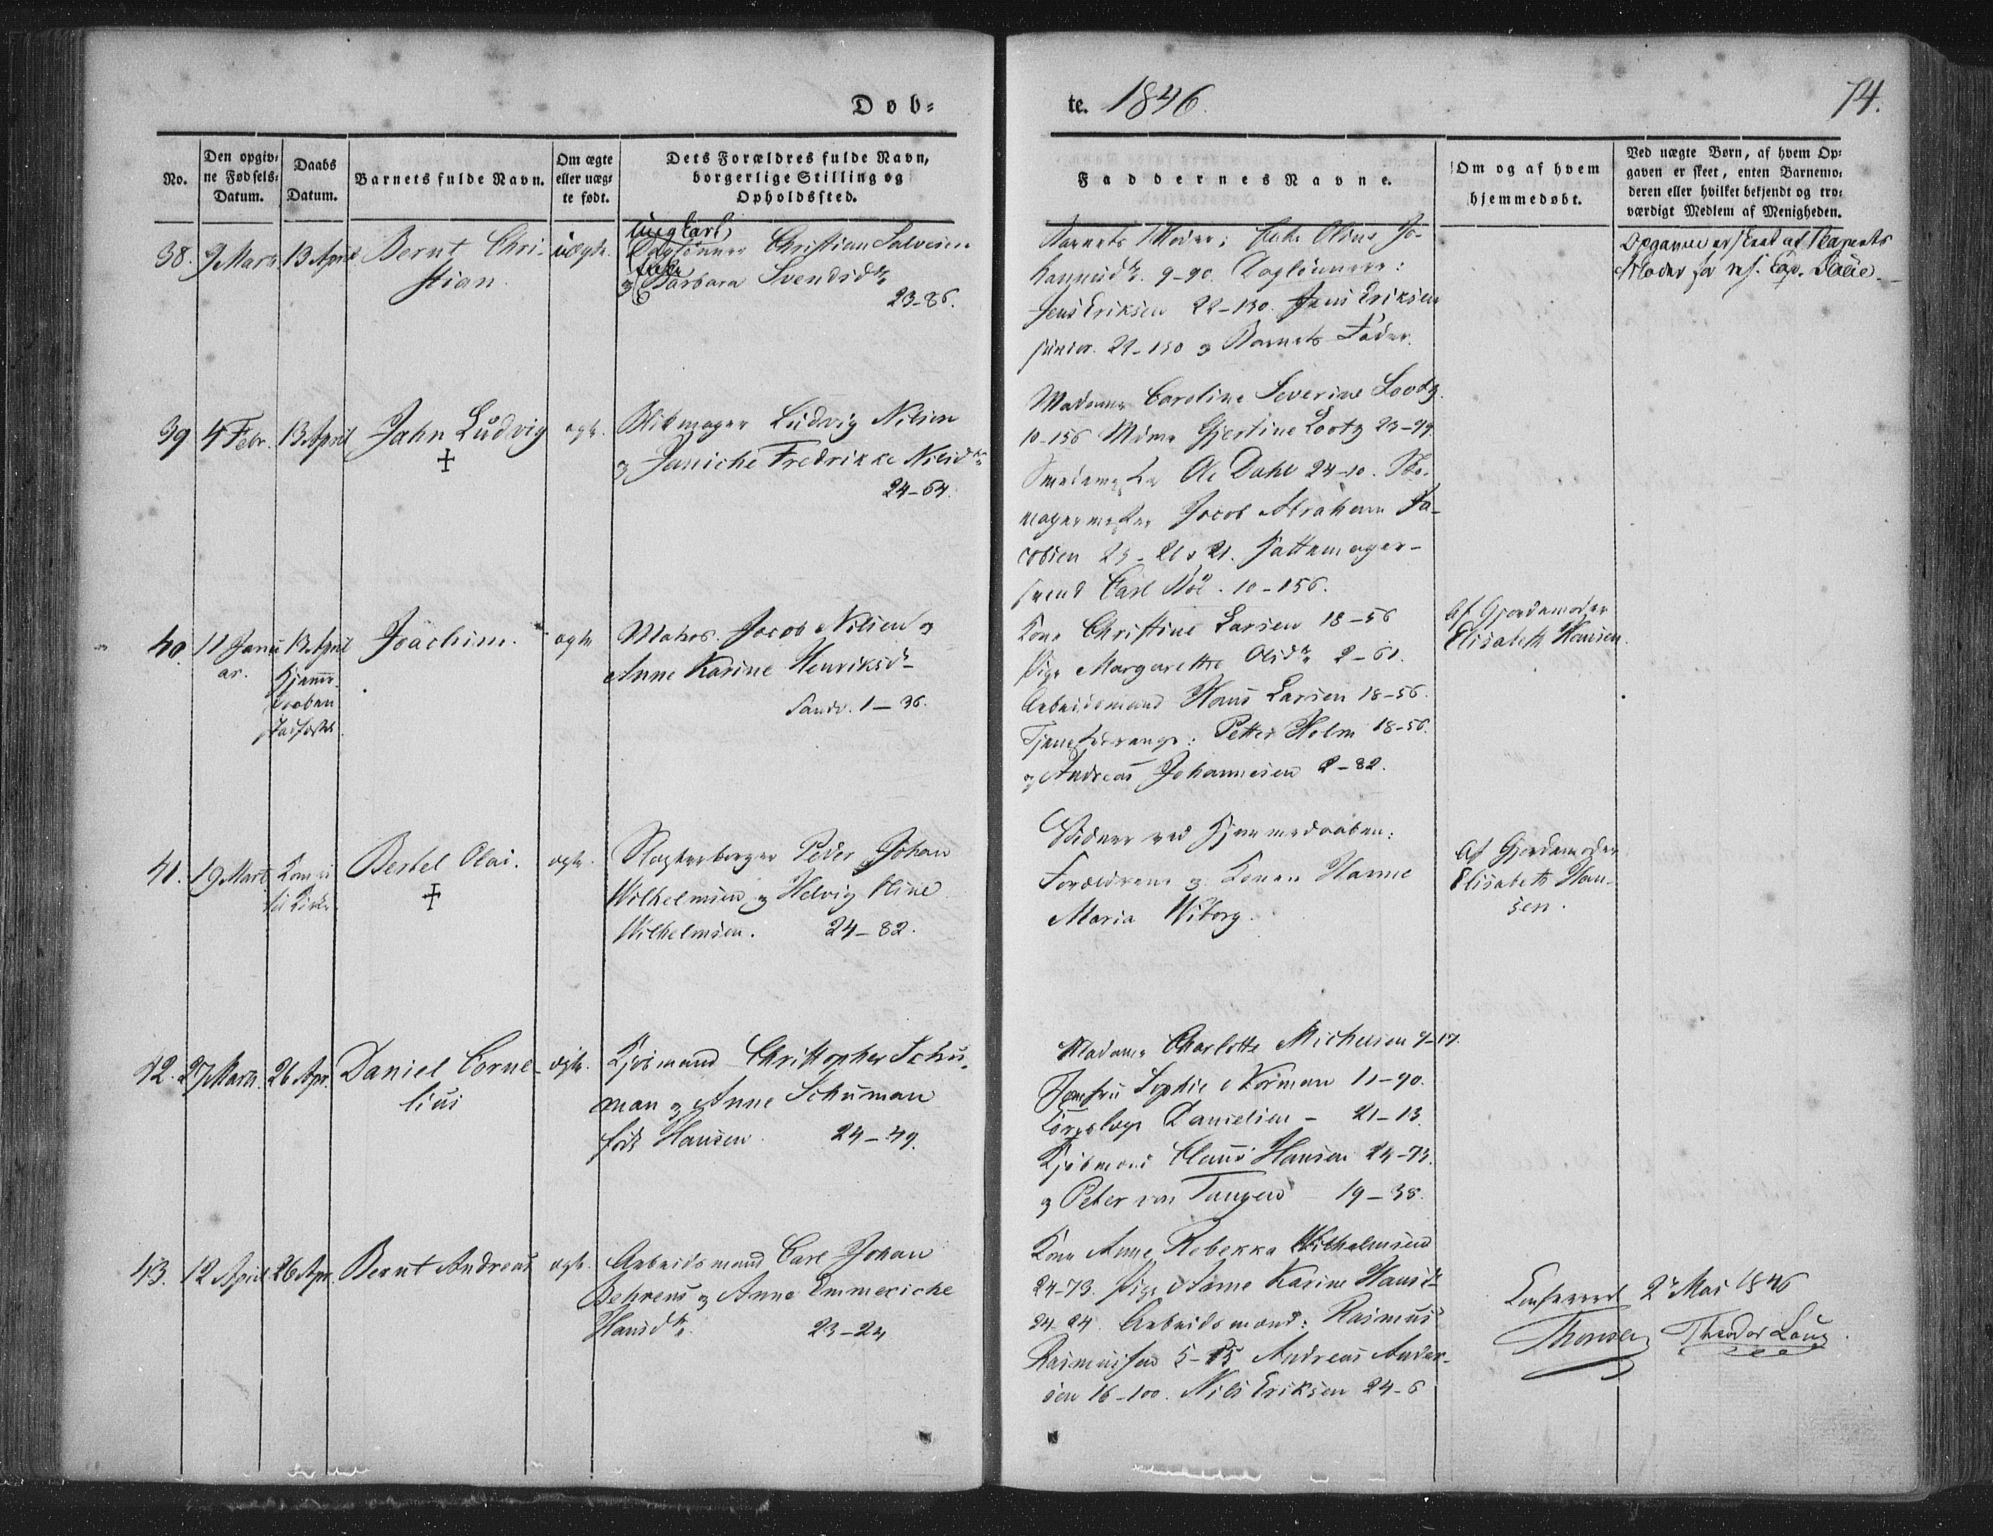 Døb-
te. 1846.
74.
No.
Den opgiv-
ne Fødsels-
Datum.
Daabs
Datum.
Barnets fulde Navn.
Om ægte
eller uæg-
te født.
Dets Forældres fulde Navn,
borgerlige Stilling og
Opholdssted.
Faddernes Navne.
Om og af hvem
hjemmedøbt.
Ved uægte Børn, af hvem Op-
gaven er skeet, enten Barnemo-
deren eller hvilket bekjendt og tro-
værdigt Medlem af Menigheden.
38. 9 Marts 13 April Bernt Chri-
stian.
uægte.
ungkarl,
Daglønner Christian Salvesen
og Barbara Svendsdtr
23-86.
Barnets Moder; Oline Jo-
hannesdtr. 9-90. Daglønnere:
Jens Eriksen 22-130. Jens Eriksen
junior. 22-130 og Barnets Fader.
Opgaven er skeet af Barnets
Moder for res. Cap.
39 4 Febr. 13 April Jahn Ludvig
+
ægte.
Ludvig Nilsen
og Janiche Fredrikke Nilsdtr
24-64.
Madame Caroline Severine Lootz
10-156 Mdme Gjertine Lootz 23-99.
Smedemester Ole Dahl 24-10.
magermester Jacob Abraham Ja-
cobsen 23- Hattemager-
svend Carl 10-156.
40. 11 Janu 13 April Joachim.
ar.
Hjemme-
daaben
ægte
Matros. Jacob Nilsen og
Anne Karine Henriksd.
Sandv. 1-36.
Kone Christine Larsen 18-56
Pige Margarethe Olsdtr 2-61.
Arbeidsmand Hans Larsen 18-56.
Tjenestedrenge: Petter Holm 18-56.
og Andreas Johannesen 2-82.
Af Gjordemoder
Elisabeth Hansen.
41. 19 Marts Kom ei
til Kirke
Bertel Olai.
+
ægte.
Slagterborger Peder Johan
Wilhelmsen og Helvig Oline
Wilhelmsen. 24-82.
Vidner ved Hjemmedaaben:
Forældrene og Konen Hanne
Maria Wiborg.
Af Gjordemoder
Elisabeth Han-
sen.
42. 27 Marts. 26 Apr. Daniel Corne-
lius
ægte.
Kjøbmand Christopher Schu-
man og Anne Schuman
født Hansen. 24-49.
Madame Charlotte Michelsen 9-17.
Jomfru Sophie Norman 11-90.
Danielsen - 21-13.
Kjøbmand Claus Hansen 24-73.
og Peter von Tangen 19-38.
43. 12 April 26 Apr. Bernt Andreas
ægte.
Arbeidsmand Carl Johan
Behrens og Anne Emmeriche
Hansdtr. 23-24
Kone Anne Rebekka Wilhelmsen
24-73. Pige Anne Karine Hansd.
24-24. Arbeidsmænd: Rasmus
Rasmussen 5-15 Andreas Ander-
sen 16-100. Nils Eriksen 24-6
Confereret 2 Mai 1846